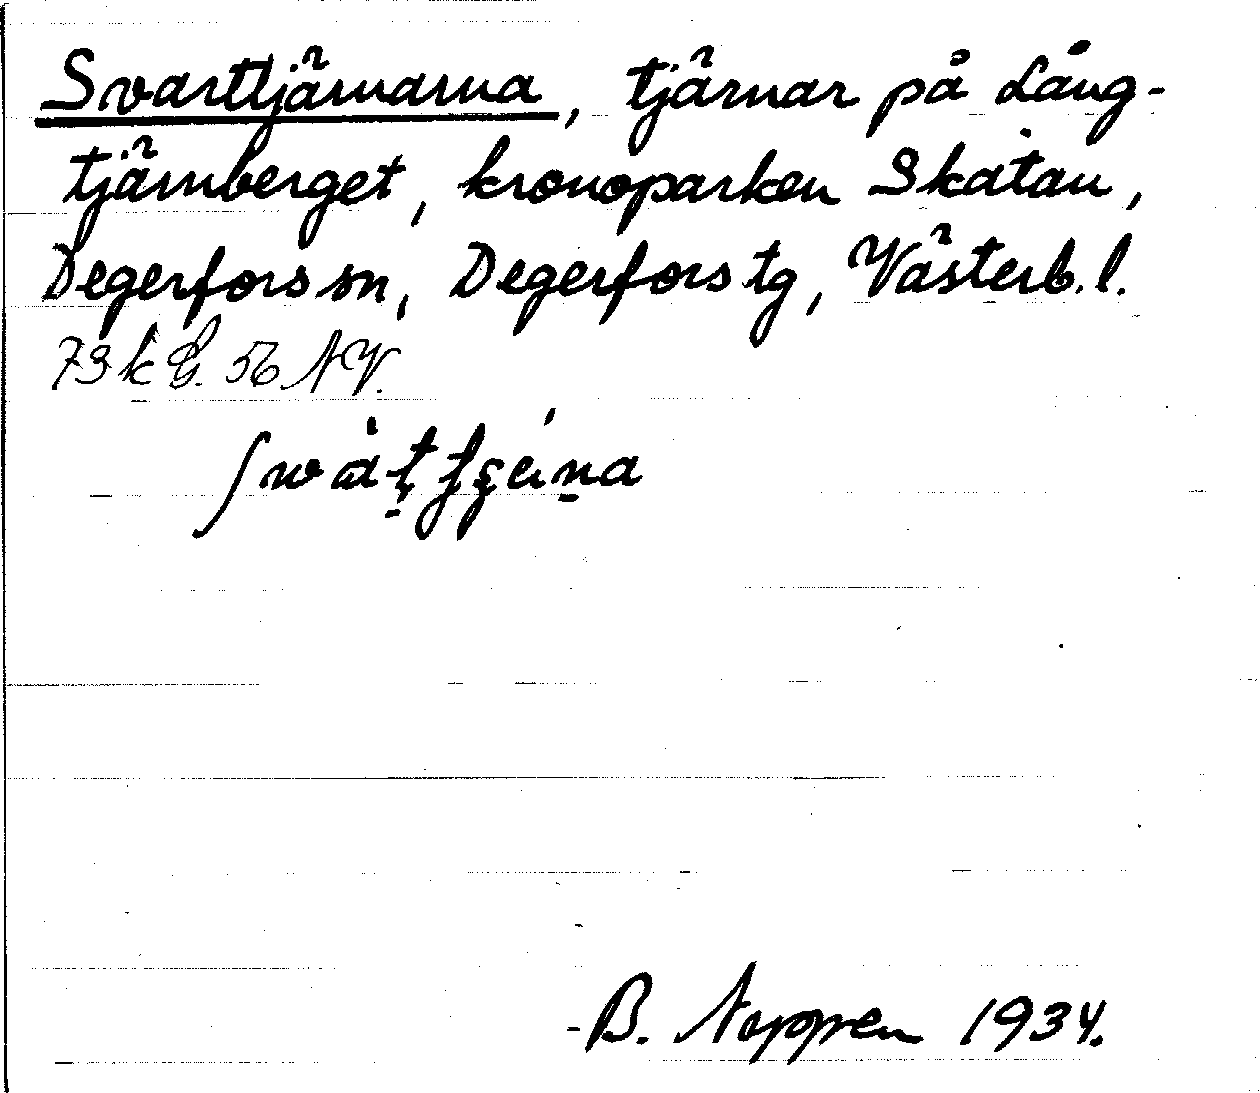 Svarttjärnarna, tjärnar på Lång-
tjärnberget, kronoparken Skatan,
Degerfors sn, Degerfors tg, Västerb. l.
73 k G. 56 NV.
B. Noppen 1934.